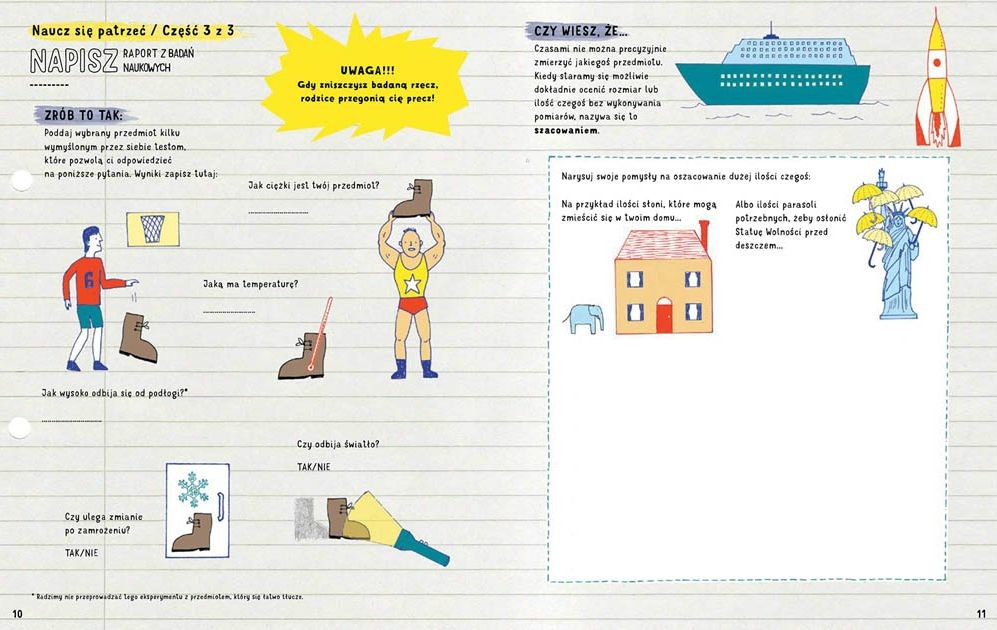 Naucz się patrzeć / Część 3 z 3
NAPISZ RAPORT Z BADAŃ
NAUKOWYCH
ZRÓB TO TAK:
Poddaj wybrany przedmiot kilku
wymyślonym przez siebie testom,
które pozwolą ci odpowiedzieć
na poniższe pytania. Wyniki zapisz tutaj:
UWAGA!!!
Gdy zniszczysz badaną rzecz,
rodzice przegonią cię precz!
Jak ciężki jest twój przedmiot?
6
Jaką ma temperaturę?
Jak wysoko odbija się od podłogi?*
Czy odbija światło?
TAK/NIE
Czy ulega zmianie
po zamrożeniu?
TAK/NIE
* Radzimy nie przeprowadzać tego eksperymentu z przedmiotem, który się łatwo tłucze.
10
CZY WIESZ, ŻE...
Czasami nie można precyzyjnie
zmierzyć jakiegoś przedmiotu.
Kiedy staramy się możliwie
dokładnie ocenić rozmiar lub
ilość czegoś bez wykonywania
pomiarów, nazywa się to
szacowaniem.
Narysuj swoje pomysły na oszacowanie dużej ilości czegoś:
Na przykład ilości słoni, które mogą
zmieścić się w twoim domu...
Albo ilości parasoli
potrzebnych, żeby osłonić
Statuę Wolności przed
deszczem...
11